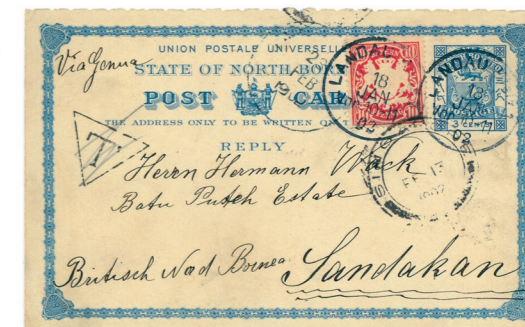 UNION POSTALE UNIVERSELLE
STATE OF NORTH BOR
Via Genua
POST CAR
THE ADDRESS ONLY TO BE WRITTEN ON
REPLY
T
LANDAU
18
JAN
02
LANDAU
18
02
FEB
3 CENTS
Herrn Hermann
Batu Puteh Estate
Britisch Nord Borneo
Sandakan